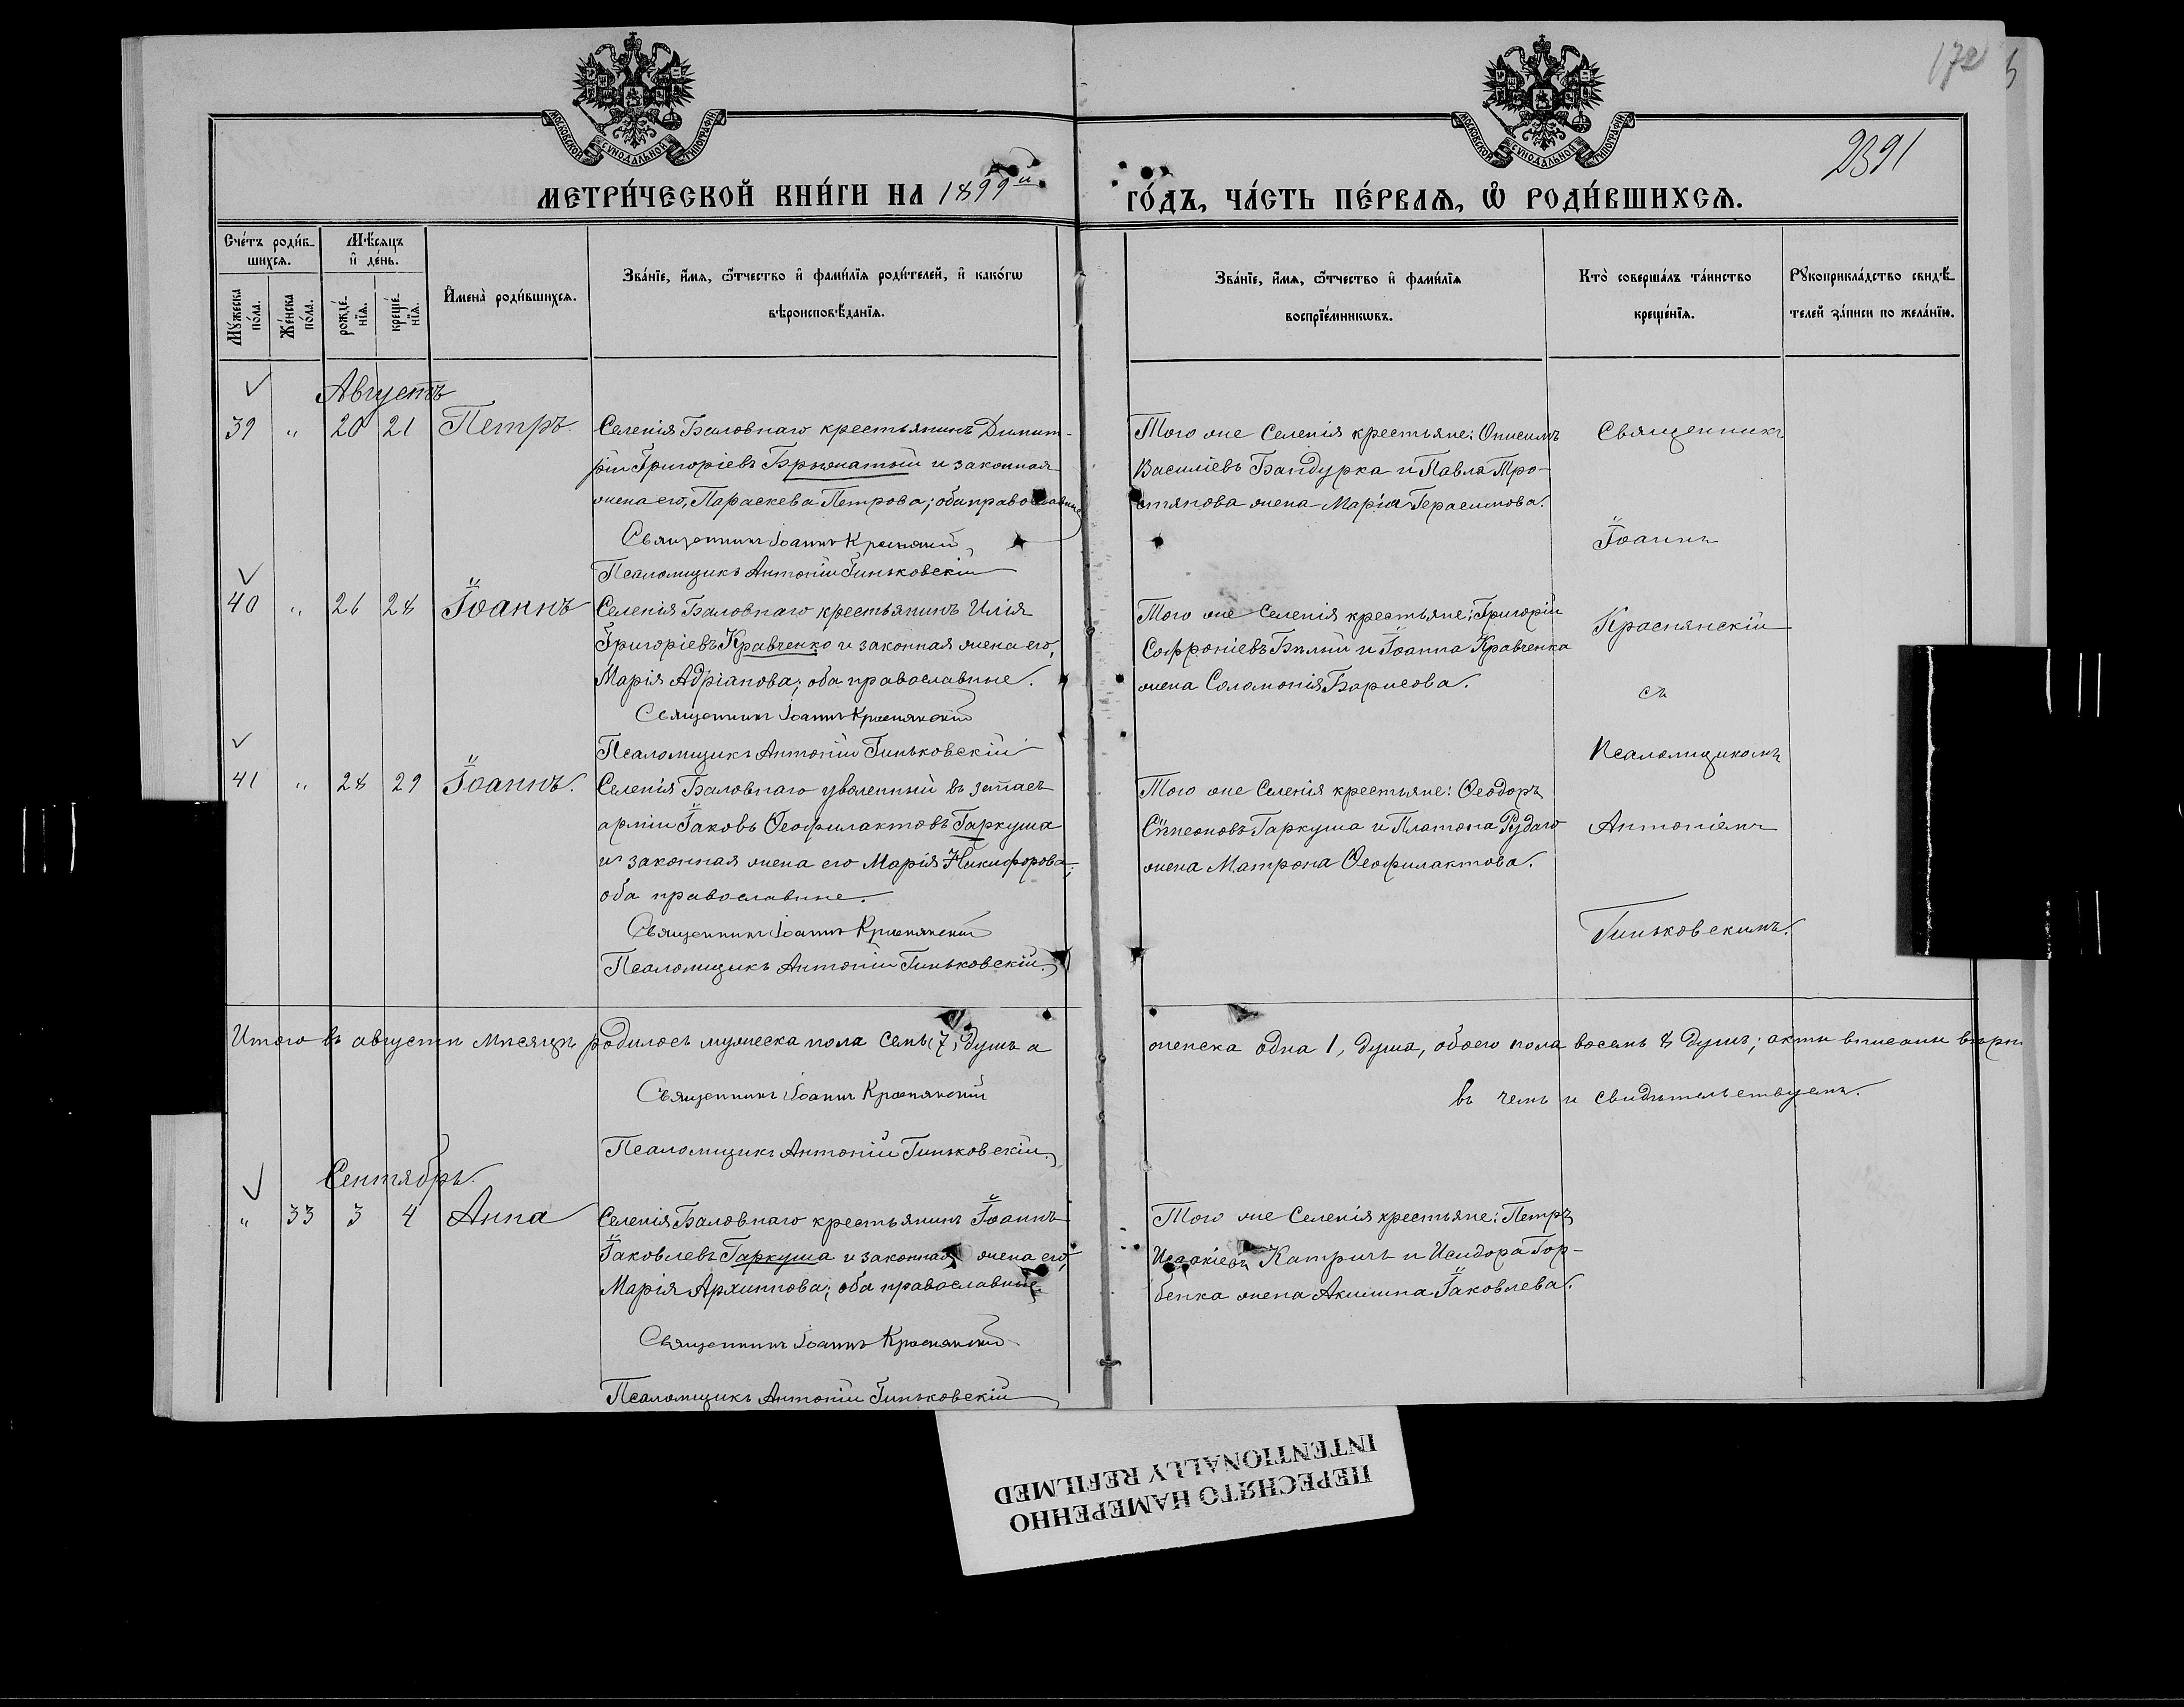 172
5
2391
МОСКОВСКОЙ СѴНОДАЛЬНОЙ ТИПОГРАФІИ
МОСКОВСКОЙ СѴНОДАЛЬНОЙ ТИПОГРАФІИ
МЕТРИ́ЧЕСКОЙ КНИ́ГИ НА 1899й ГО́ДЪ, ЧА́СТЬ ПЕ́РВАѦ, Ѡ҆ РОДИ́ВШИХСѦ.
Сче́тъ роди́вшихсѧ.
Мꙋ́жеска по́ла.
Же́нска по́ла.
Мѣ́сѧцъ и҆ де́нь.
рожде́нїѧ.
креще́нїѧ.
И҆мена̀ роди́вшихсѧ.
Зва́нїе, и҆́мѧ, ѻ҆́тчество и҆ фами́лїѧ роди́телей, и҆ како́гѡ
вѣроисповѣ́данїѧ.
Зва́нїе, и҆́мѧ, ѻ҆́тчество и҆ фами́лїѧ
воспрїе́мникѡвъ.
Кто̀ соверша́лъ та́инство
креще́нїѧ.
Рꙋкоприкла́дство свидѣ́-
телей за́писи по жела́нїю.
Августъ
39 " 20 21 Петръ.
Селенія Баловнаго крестьянинъ Димит-
рій Григоріевъ Брюхатый и законная
жена его, Параскева Петрова; оба православные
Священникъ Іоаннъ Краснянскій
Псаломщикъ Антоній Гиньковскій
Того же Селенія крестьяне: Онисимъ
Василіевъ Бандурка и Павла Тро-
стякова жена Марія Герасимова.
Священникъ
Іоаннъ
40 " 26 28 Іоаннъ
Селенія Баловнаго крестьянинъ Илія
Григоріевъ Кравченко и законная жена его,
Марія Адріанова; оба православные.
Священникъ Іоаннъ Краснянскій
Псаломщикъ Антоній Гиньковскій
Того же Селенія крестьяне: Григорій
Софроніевъ Бѣлый и Іоанна Кравченка
жена Соломонія Борисова.
Краснянскій
съ
псаломщикомъ
41 " 28 29 Іоаннъ.
Селенія Баловнаго уволенный въ запасъ
арміи Іаковъ Ѳеофилактовъ Гаркуша
и законная жена его Марія Никифорова;
оба православные.
Священникъ Іоаннъ Краснянскій
Псаломщикъ Антоній Гиньковскій
Того же Селенія крестьяне: Ѳеодоръ
Сѵмеоновъ Гаркуша и Платона Рудаго
жена Матрона Ѳеофилактова.
Антоніемъ
Гиньковскимъ.
Итого въ августѣ мѣсяцѣ родилось мужеска пола семь (7) душъ а женска одна 1, душа, обоего пола восемь 8 душъ; акты вписаны вѣрно
въ чемъ и свидѣтельствуемъ.
Священникъ Іоаннъ Краснянскій
Псаломщикъ Антоній Гиньковскій
Сентябрь.
" 33 3 4 Анна
Селенія Баловнаго крестьянинъ Іоаннъ
Іаковлевъ Гаркуша и законная жена его,
Марія Архиппова; оба православные
Священникъ Іоаннъ Краснянскій
Псаломщикъ Антоній Гиньковскій
Того же Селенія крестьяне: Петръ
Исаакіевъ Катричъ и Исидора Гор-
бенка жена Акилина Іаковлева.
ПЕРЕСНЯТО НАМЕРЕННО
INTENTIONALLY REFILMED